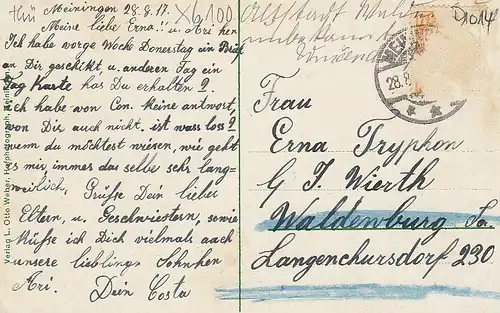 Meiningen 28.8.17.
Meine liebe Erna!! u. Ari
Ich habe vorge Woche Donerstag ein Brief
an Dir geschikt, u. anderen Tag ein
Tag Karte has Du erhalten?
Ich habe von Con. Keine antwort,
von Dir auch nicht. ist was loss?
wenn du möchtest wiesen, wie geht
es mir, immer das selbe sehr lang-
weilich, Grüße Dein lieber
Eltern, u. Geschwiestern, sowie
Küße ich Dich vielmals auch
unsere lieblings Sohnhen
Ari. Dein Costa
Verlag L. Otto Weber, Hofphotograph, Meiningen
X6,100
Altstadt Wald
unbekannt
1014
28.8
Frau
Erna Tryphon
G J. Wierth
Waldenburg Sa.
Langenchursdorf 230